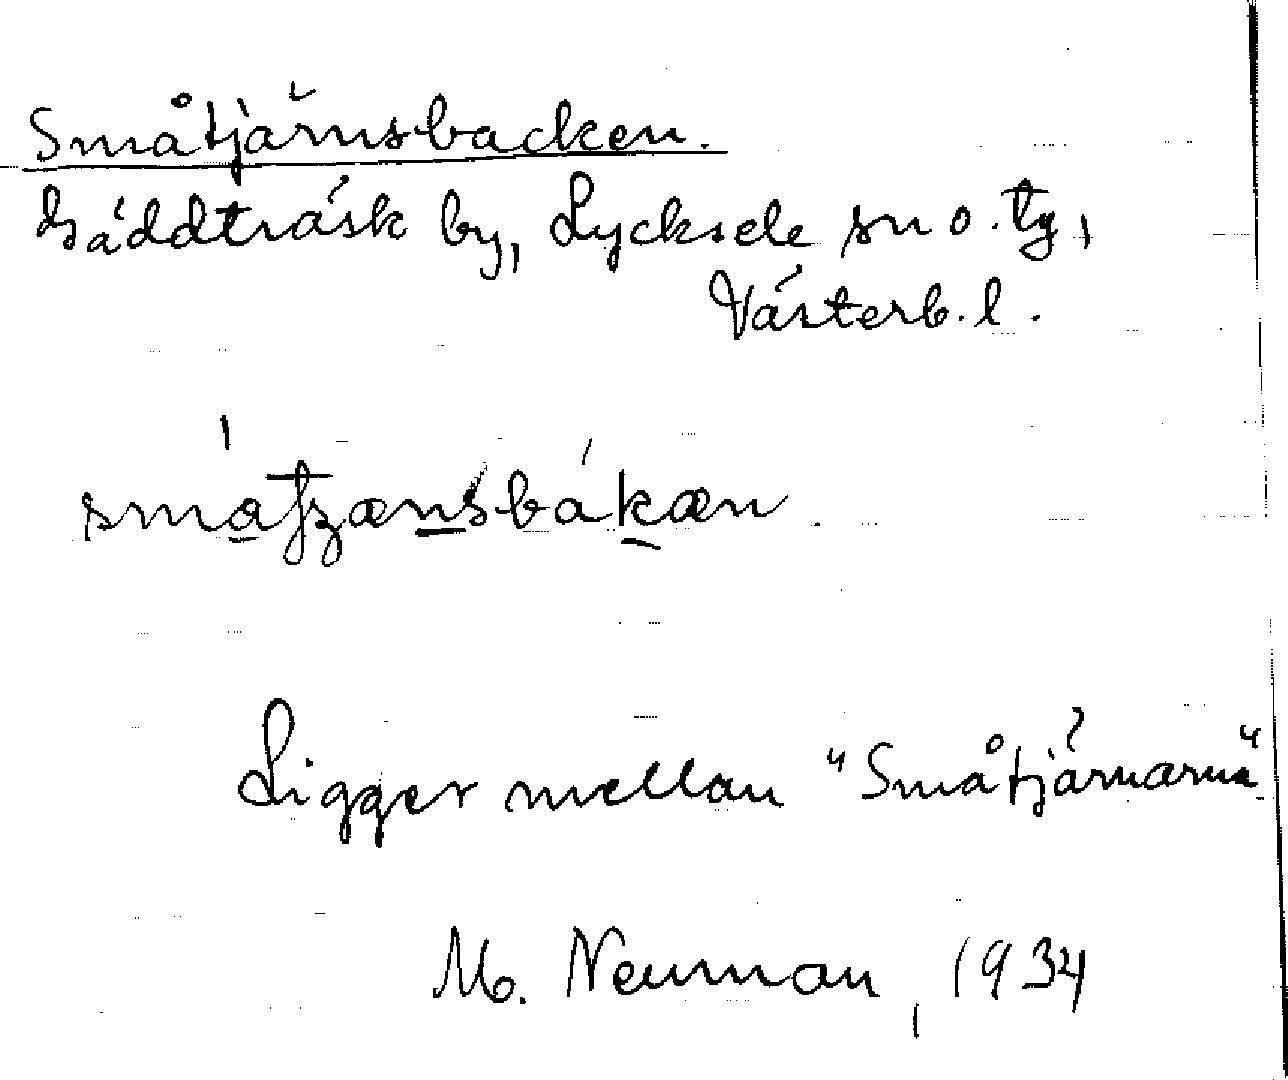 Småtjärnsbacken.
Gäddträsk by, Lycksele sn o. tg,
Västerb. l.
Ligger mellan "Småtjärnarna"
M. Neuman, 1934